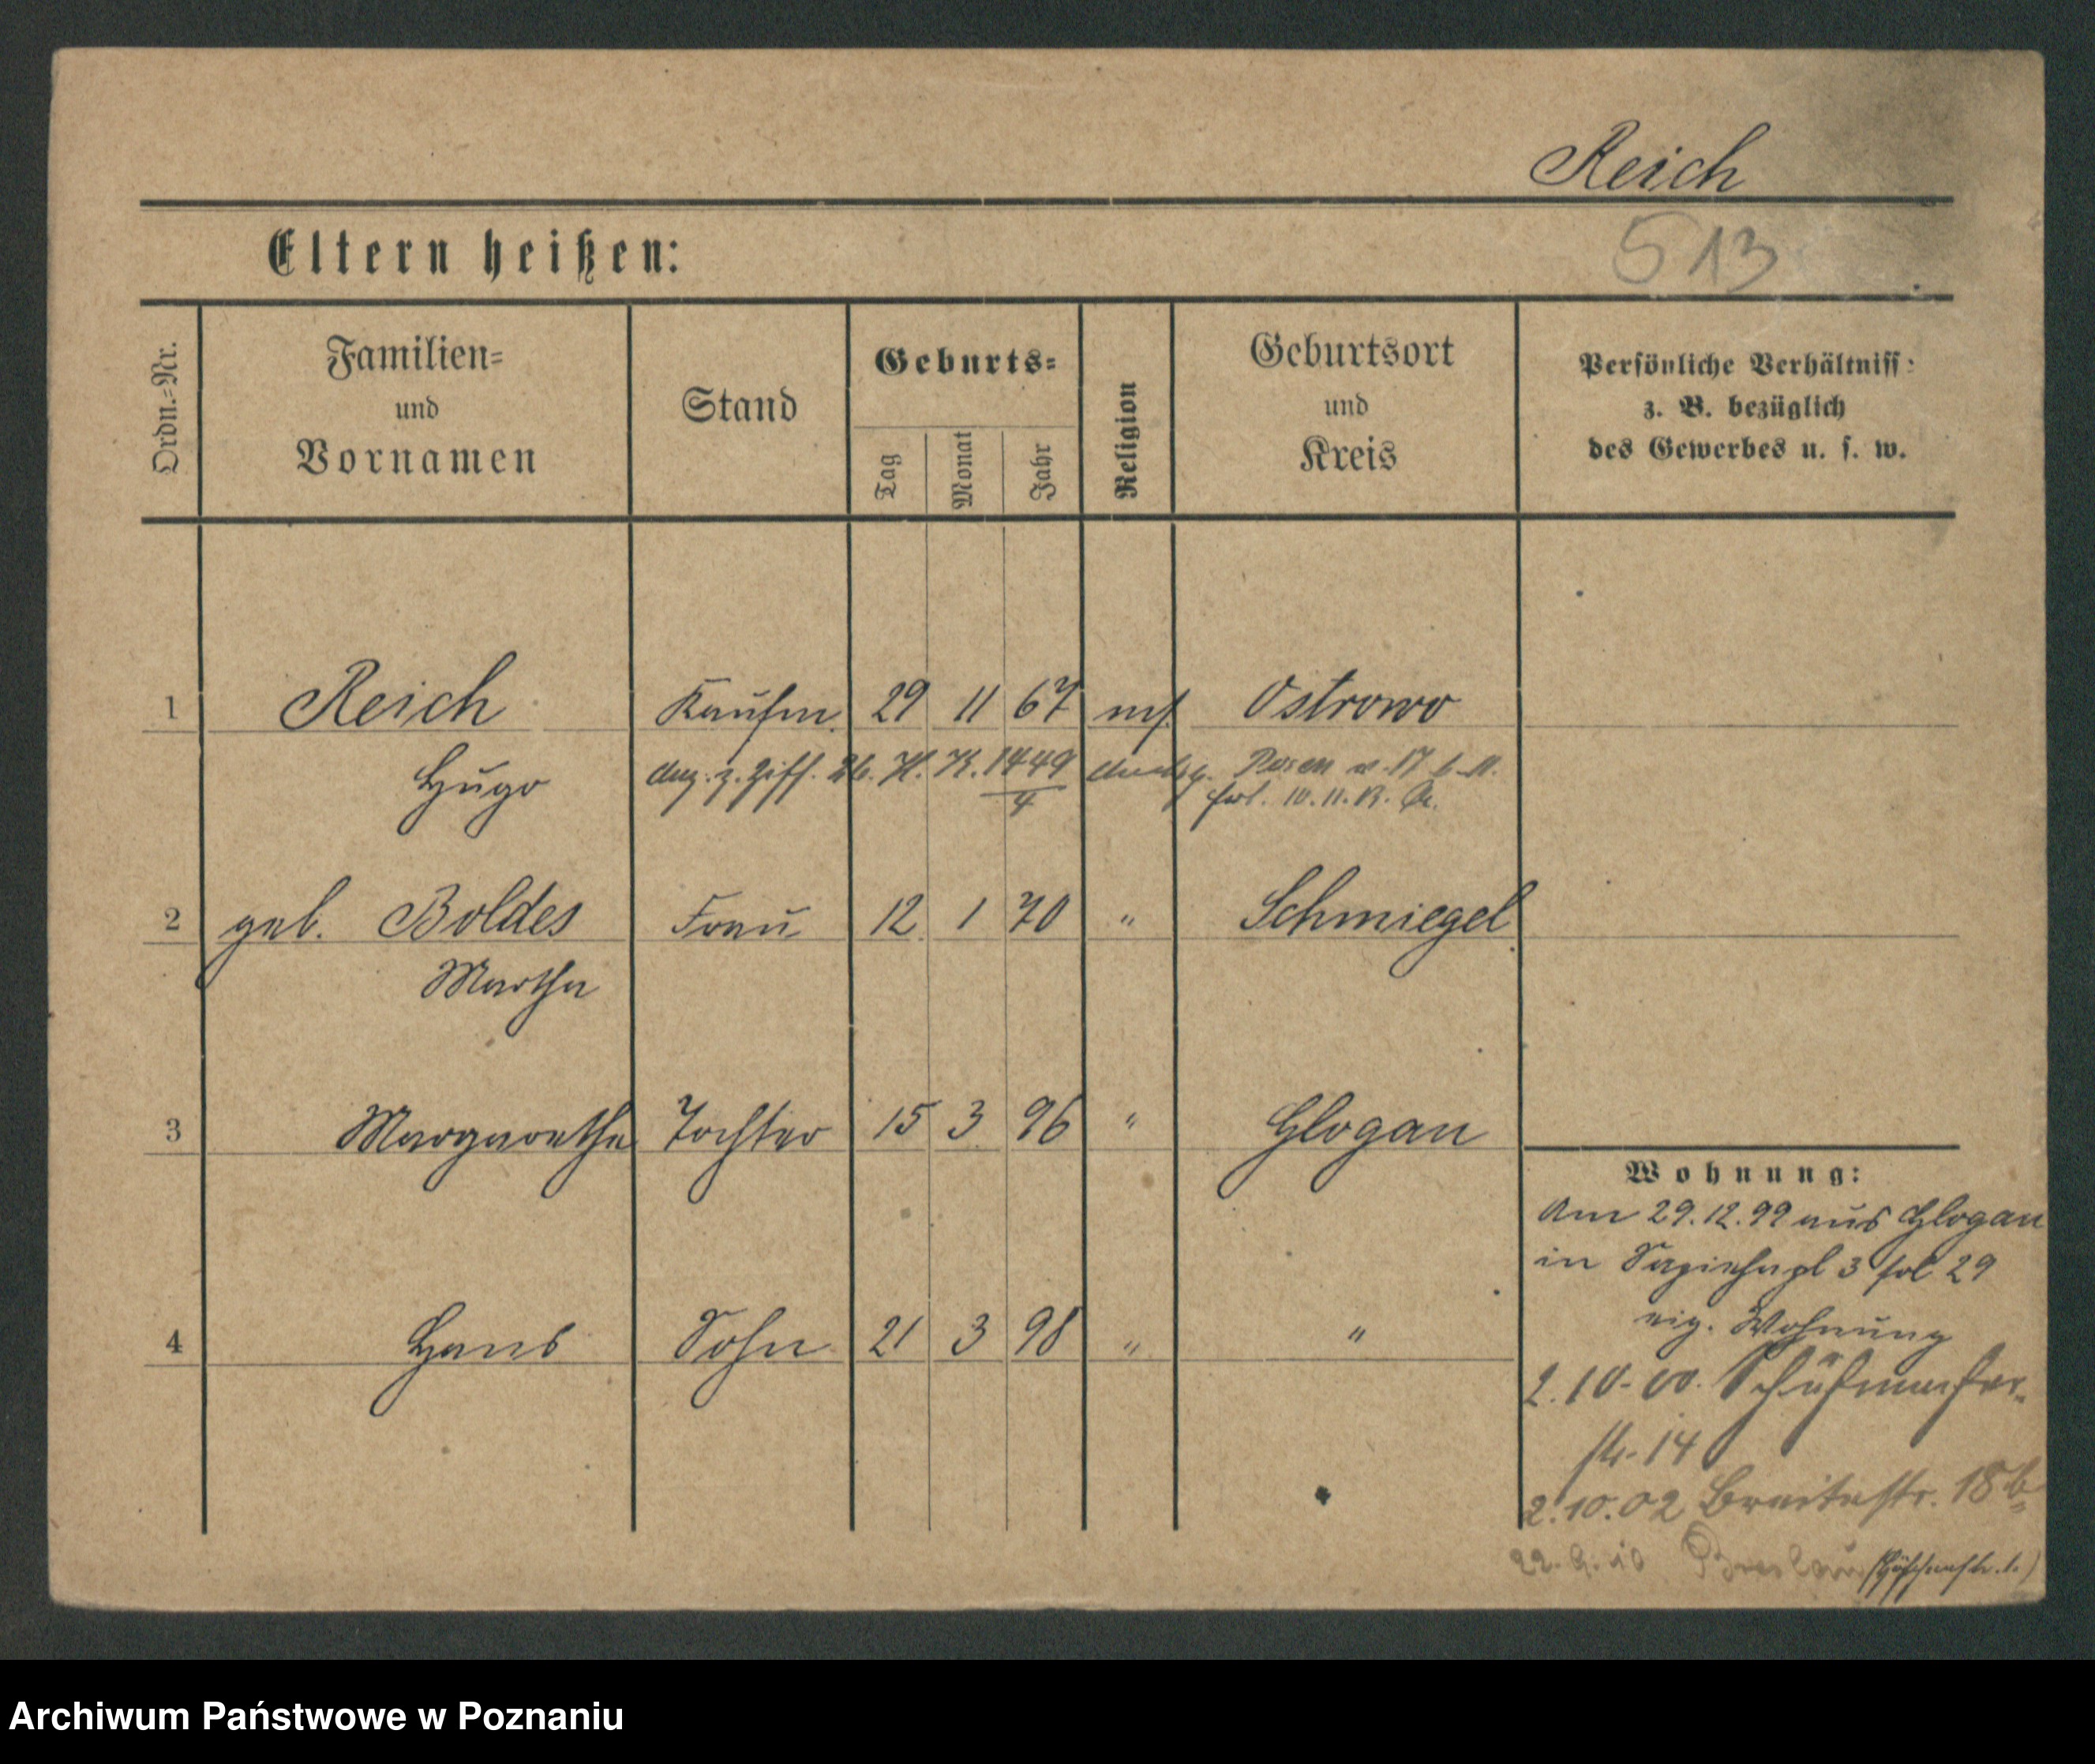 Reich
513
Eltern heißen:
Ordn.=Nr.
Familien=
und
Vornamen
Stand
Geburts=
Tag
Monat
Jahr
Religion
Geburtsort
und
Kreis
Persönliche Verhältniss:
z. B. bezüglich
des Gewerbes u. s. w.
1 Reich Kaufm. 29 11 67 mos. Ostrowo
Hugo
Posen
2 geb. Boldes Frau 12 1 70 " Schmiegel
Martha
3 Margarethe Tochter 15 3 96 " Glogau
4 Hans Sohn 21 3 98 " "
Wohnung:
Am 29.12.99 aus Glogau
in Sapiehapl 3 fol 29
eig. Wohnung
2.10.00. Schützen
str. 14
2.10.02 Breitestr. 18b
22.9.10 Breslau
Archiwum Państwowe w Poznaniu